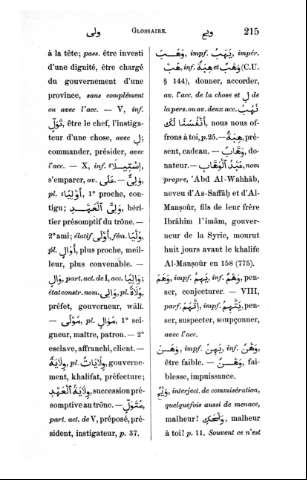 ولى GLOSSAIRE. ويح 215
à la tête; pass. être investi
d'une dignité, être chargé
du gouvernement d'une
province, sans complément
ou avec l'acc. — V, inf.
تَوَلٍّ, être le chef, l'instiga-
teur d'une chose, avec لِ;
commander, présider, avec
l'acc. — X, inf. اِسْتِيلَاء,
s'emparer, av. عَلَى. — وَلِيّ,
pl. أَوْلِيَاء, 1° proche, con-
tigu; وَلِيّ الْعَهْدِ, héri-
tier présomptif du trône. —
2° ami; élatif أَوْلَى, fém. وُلْيَا,
pl. أَوَالٍ, plus proche, meil-
leur, plus convenable. —
وَالٍ, part. act. de I, acc. وَالِيًا;
état constr. nom. وَالِي, pl. وُلَاة,
préfet, gouverneur, wâlî.
— مَوْلًى, pl. مَوَالٍ, 1° sei-
gneur, maître, patron. — 2°
esclave, affranchi, client. —
وِلَايَة, pl. وِلَايَات, gouverne-
ment, khalifat, préfecture;
وِلَايَة الْعَهْدِ, succession pré-
somptive au trône. — مُتَوَلٍّ,
part. act. de V, préposé, pré-
sident, instigateur, p. 37.
وَهَبَ, impf. يَهَبُ, impér.
هَبْ, inf. هِبَة et وَهْب (C.U.
§ 144), donner, accorder,
av. l'acc. de la chose et لِ de
la pers. ou av. deux acc. وَهَبْنَا
لَكَ أَنْفُسَنَا, nous nous of-
frons à toi, p. 25. — هِبَة, pré-
sent, cadeau. — وَهَّاب, do-
nateur. — عَبْد الْوَهَّاب, nom
propre, 'Abd Al-Wahhâb,
neveu d'As-Saffâḥ et d'Al-
Manṣoûr, fils de leur frère
Ibrâhîm l'imâm, gouver-
neur de la Syrie, mourut
huit jours avant le khalife
Al-Manṣoûr en 158 (775).
وَهَمَ, impf. يَهِمُ, inf. وَهْم, pen-
ser, conjecturer. — VIII,
parf. اِتَّهَمَ, impf. يَتَّهِمُ, pen-
ser, suspecter, soupçonner,
avec l'acc.
وَهَنَ, impf. يَهِنُ, inf. وَهْن,
être faible. — وَهْن, fai-
blesse, impuissance.
وَيْح, interject. de commisération,
quelquefois aussi de menace,
malheur! وَيْحَكَ, malheur
à toi! p. 11. Souvent ce n'est